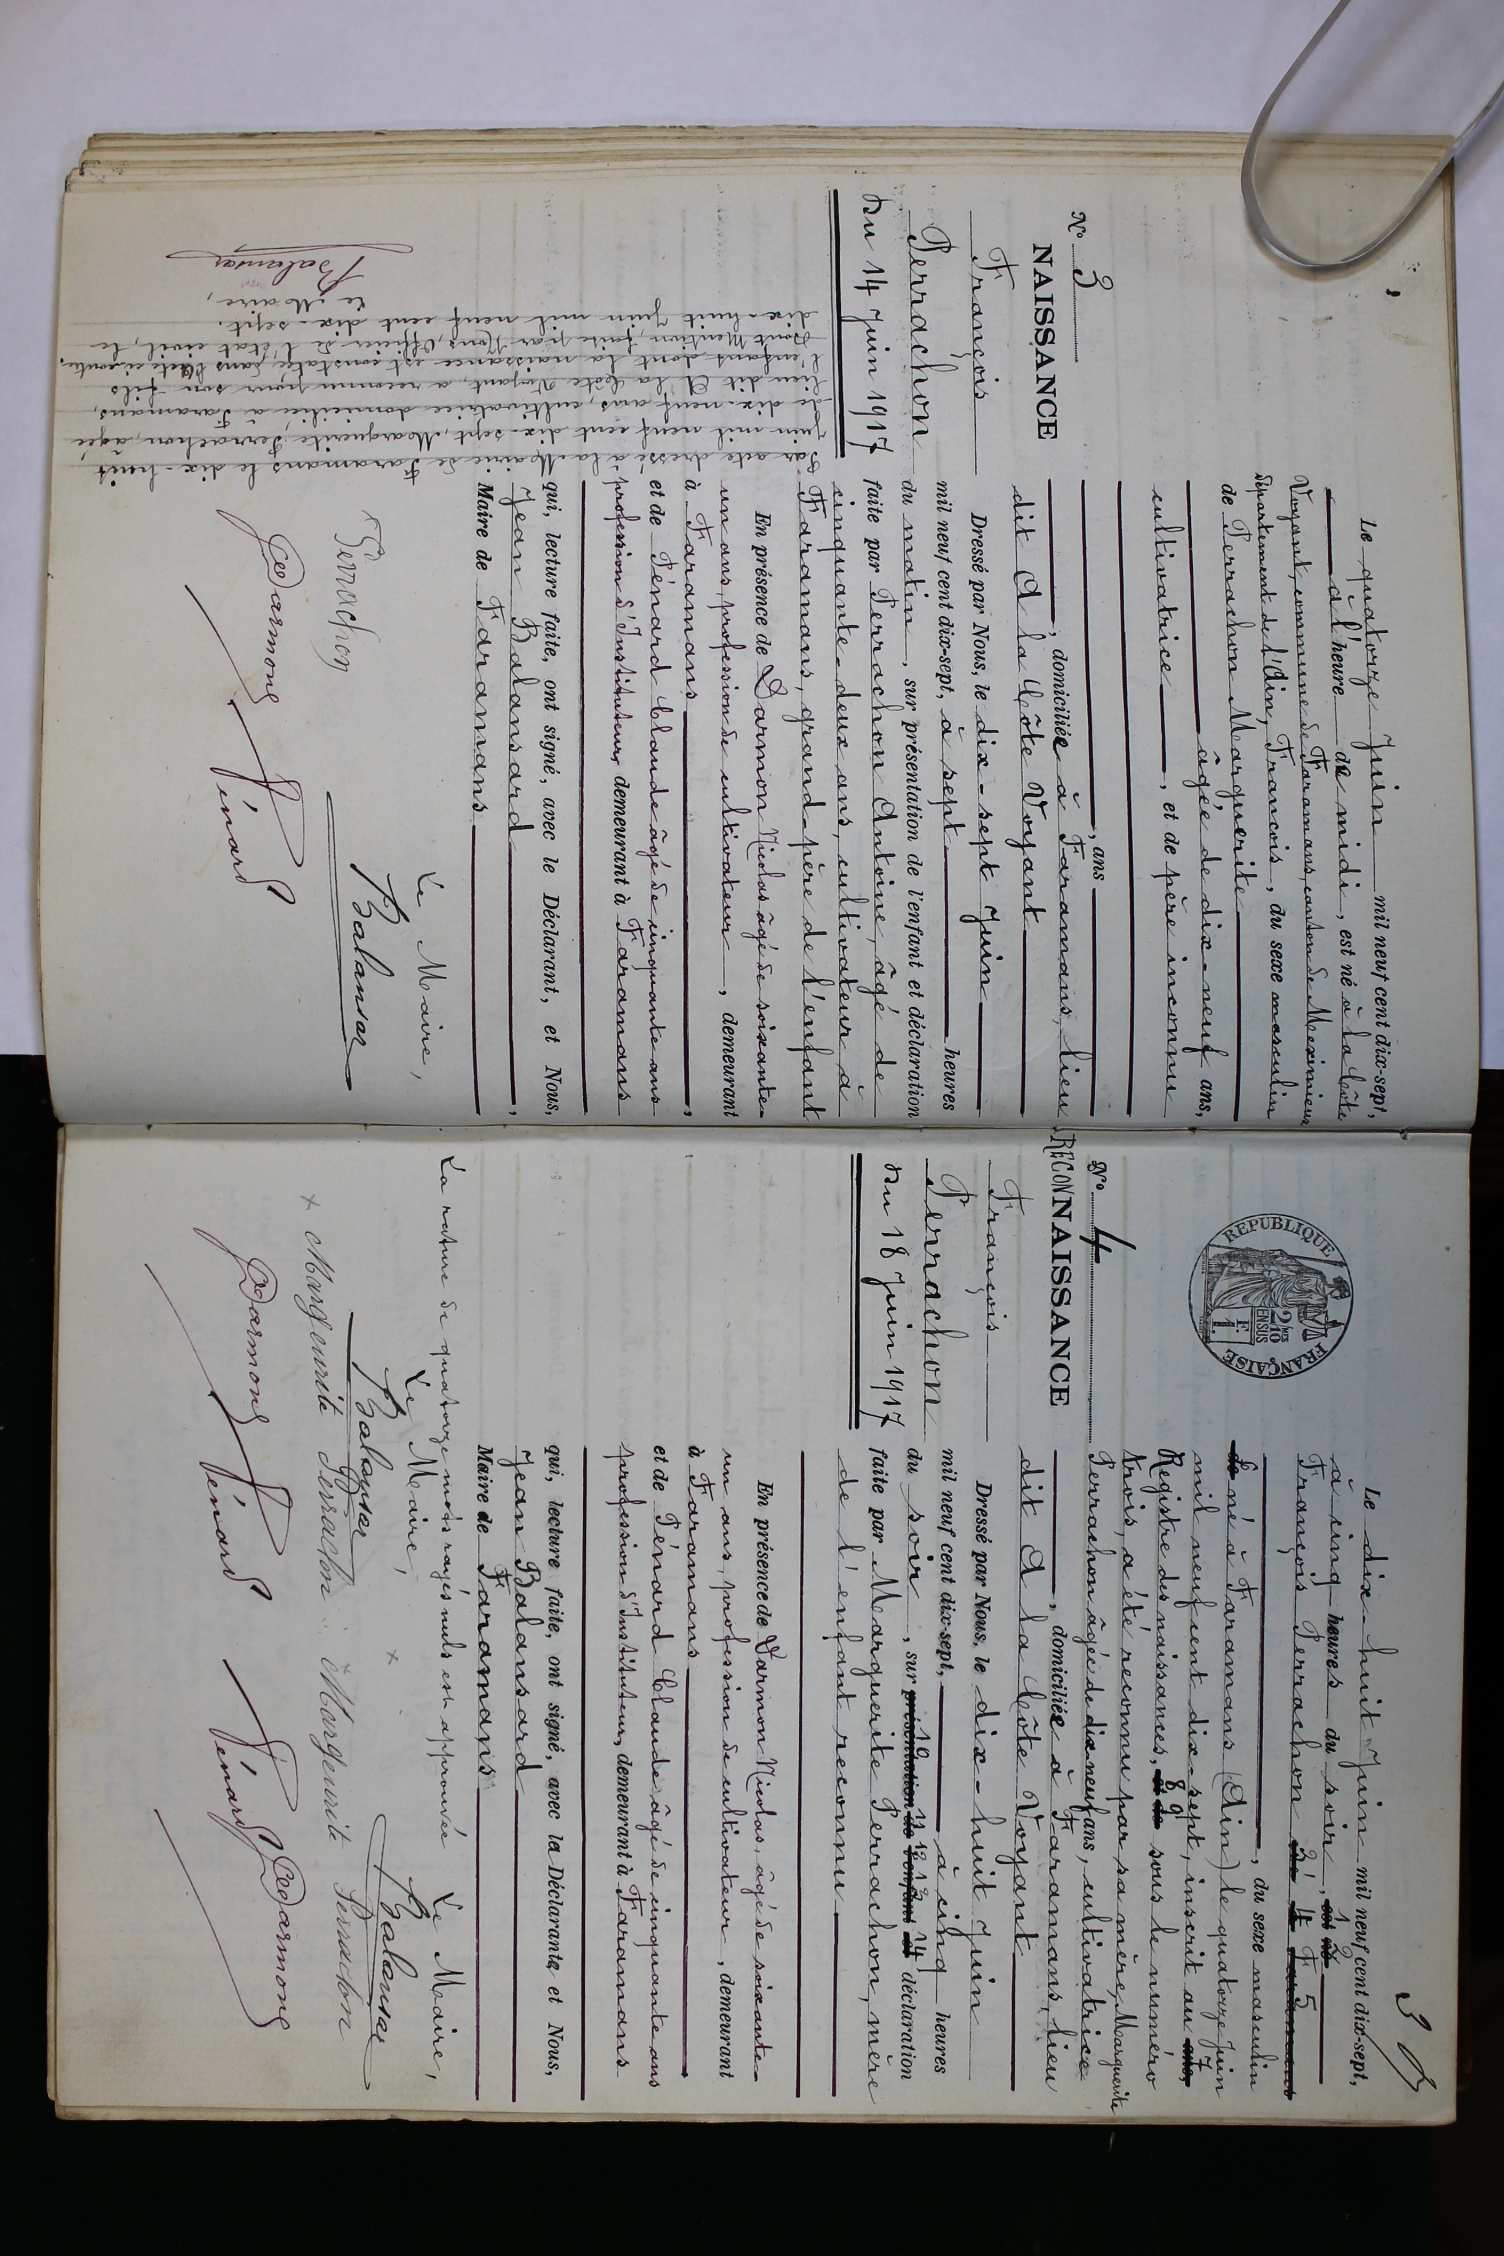 N° 3
NAISSANCE
François
Perrachon
Du 14 Juin 1917
Par acte dressé à la Mairie de Faramans le dix-huit
Juin mil neuf cent dix-sept, Marguerite Perrachon, âgée
de dix-neuf ans, cultivatrice, domiciliée à Faramans,
lieu dit A la Côte Voyant, a reconnu pour son fils
l'enfant dont la naissance est constatée dans l'acte ci-contre.
Dont Mention faite par Nous, Officier de l'état civil, le
dix-huit Juin mil neuf cent dix-sept.
Le Maire,
Balansar
Le quatorze Juin mil neuf cent dix-sept,
à l'heure de midi, est né à la Côte
Voyant, commune de Faramans, canton de Meximieux
département de l'Ain, François, du sexe masculin
de Perrachon Marguerite
âgée de dix-neuf ans,
cultivatrice, et de père inconnu
, ans
, domiciliée à Faramans, lieu
dit A la Côte Voyant
Dressé par Nous, le dix-sept Juin
mil neuf cent dix-sept, à sept heures
du matin, sur présentation de l'enfant et déclaration
faite par Perrachon Antoine, âgé de
cinquante-deux ans, cultivateur à
Faramans, grand-père de l'enfant
En présence de Darmon Nicolas âgé de soixante-
un ans, profession de cultivateur, demeurant
à Faramans,
et de Pénard Claude âgé de cinquante ans
profession d'Instituteur, demeurant à Faramans
qui, lecture faite, ont signé, avec le Déclarant, et Nous,
Jean Balansard,
Maire de Faramans
Le Maire,
Perrachon
Balansar
Darmon
Pénard
3
N° 4
RECONNAISSANCE
François
Perrachon
Du 18 Juin 1917
REPUBLIQUE FRANÇAISE
2/10 EN SUS
F. 1.
Le dix-huit Juin mil neuf cent dix-sept,
à cinq heures du soir, est né
François Perrachon
, du sexe masculin
né à Faramans (Ain) le quatorze Juin
mil neuf cent dix-sept, inscrit au ans,
Registre des naissances, et de sous le numéro
trois, a été reconnu par sa mère, Marguerite
Perrachon âgée de dix-neuf ans, cultivatrice
, domiciliée à Faramans, lieu
dit A la Côte Voyant
Dressé par Nous, le dix-huit Juin
mil neuf cent dix-sept, à cinq heures
du soir, sur présentation de l'enfant et déclaration
faite par Marguerite Perrachon, mère
de l'enfant reconnu
En présence de Darmon Nicolas, âgé de soixante-
un ans, profession de cultivateur, demeurant
à Faramans
et de Pénard Claude âgé de cinquante ans
profession d'Instituteur, demeurant à Faramans
qui, lecture faite, ont signé, avec la Déclarante et Nous,
Jean Balansard
Maire de Faramans
La rature de quatorze mots rayés nuls est approuvée
Le Maire,
Le Maire,
Balansar
Balansar
Marguerite Perrachon
Marguerite Perrachon
Darmon
Pénard
Pénard
Darmon